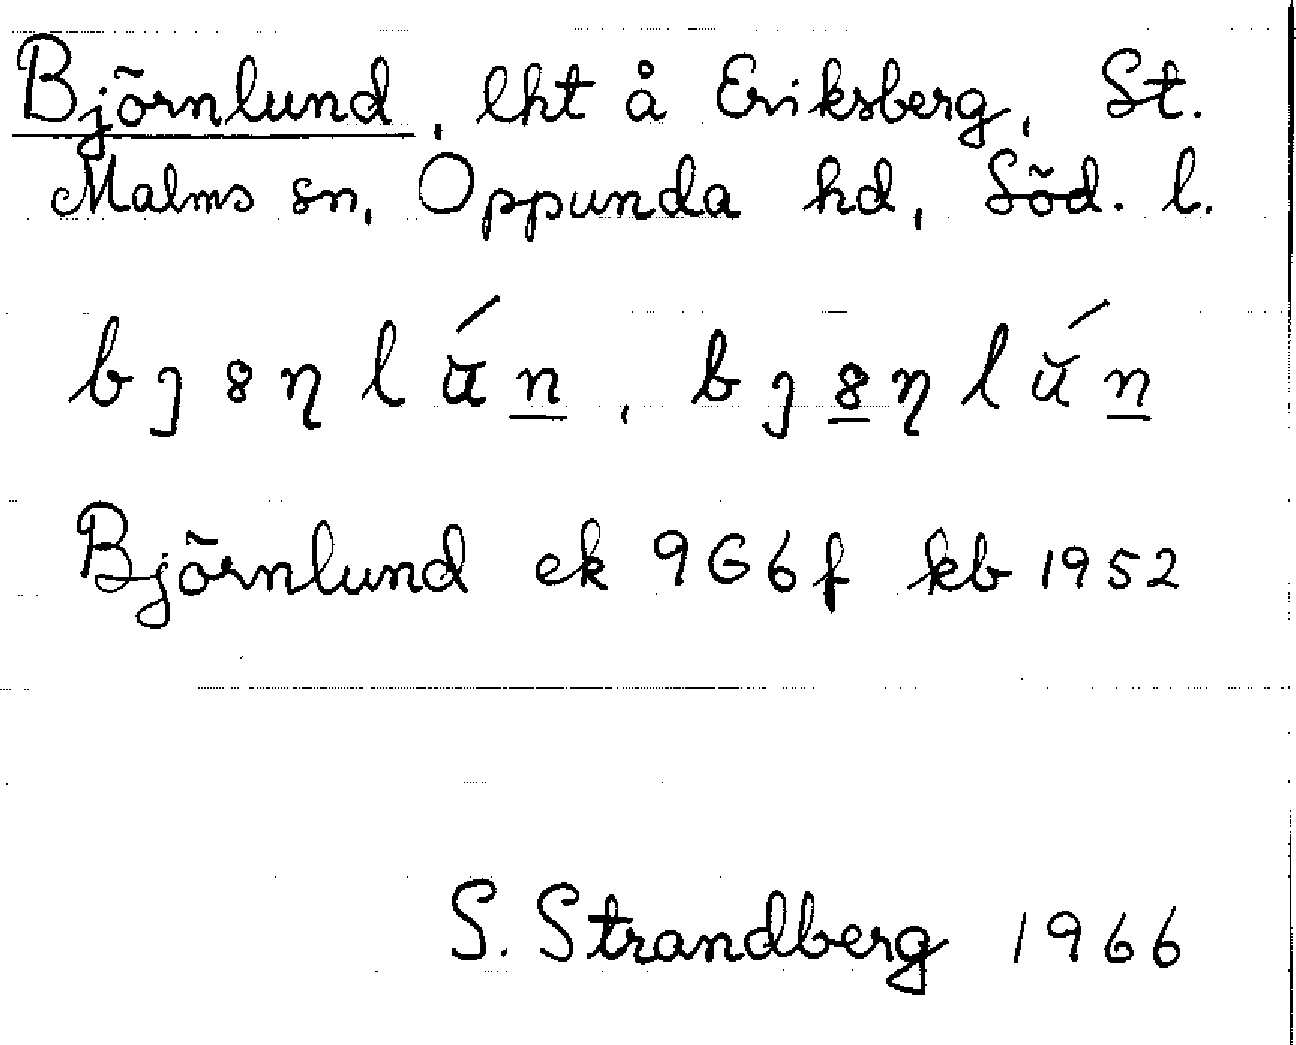 Björnlund, lht å Eriksberg, St.
Malms sn, Oppunda hd, Söd. l.
bȷ8ηlŭ́n̲, bȷ8̲ηlŭ́n̲
Björnlund ek 9G6f kb 1952
S. Strandberg 1966